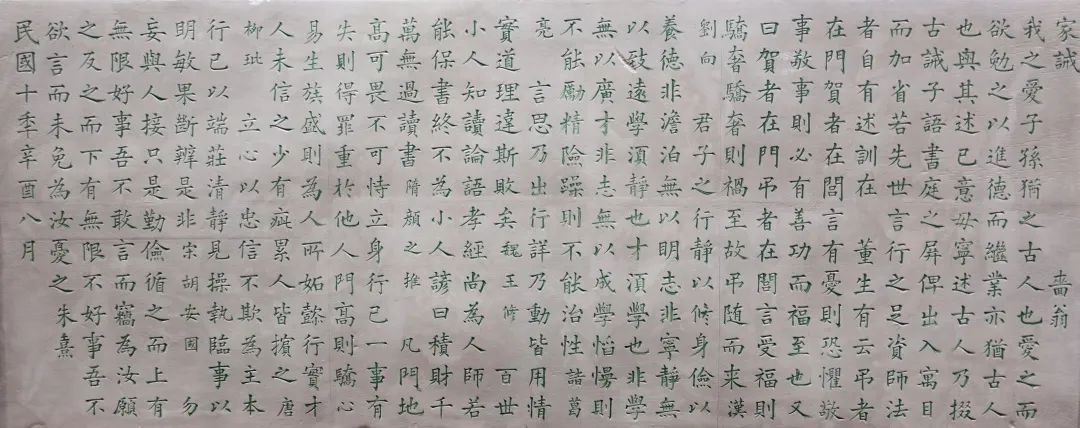 家誡 嗇翁
我之愛子孫猶之古人也愛之而
欲勉之以進德而繼業亦猶古人
也與其述己意毋寧述古人乃掇
古誡子語書庭之屏俾出入寓目
而加省若先世言行之足資師法
者自有述訓在 董生有云弔者
在門賀者在閭言有憂則恐懼敬
事敬事則必有善功而福至也又
曰賀者在門弔者在閭言受福則
驕奢驕奢則禍至故弔随而来漢
劉向 君子之行靜以修身儉以
養德非澹泊無以明志非寧靜無
以致遠學須靜也才須學也非學
無以廣才非志無以成學慆慢則
不能勵精險躁則不能治性諸葛
亮 言思乃出行詳乃動皆用情
實道理違斯敗矣魏王修 百世
小人知讀論語孝經尚為人師若
能保書終不為小人諺曰積財千
萬無過讀書隋顏之推 凡門地
高可畏不可恃立身行己一事有
失則得罪重於他人門高則驕心
易生族盛則為人所妬懿行實才
人未信之少有疵累人皆擯之唐
柳玭 立心以忠信不欺為主本
行己以端莊清靜見操執臨事以
明敏果斷辨是非宋胡安國 勿
妄與人接只是勤儉循之而上有
無限好事吾不敢言而竊為汝願
之反之而下有無限不好事吾不
欲言而未免為汝憂之朱熹
民國十秊辛酉八月